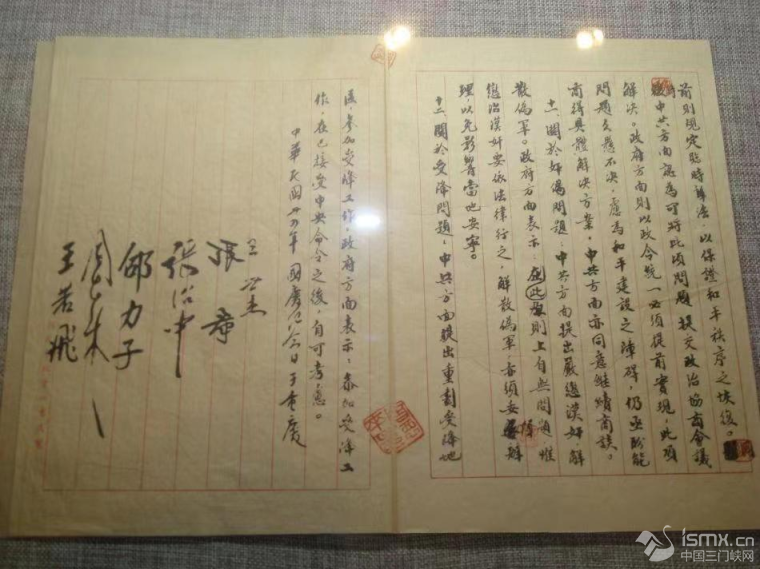 前則規定臨時辦法，以保證和平秩序之恢復。
中共方面認為可將此項問題提交政治協商會議
解決。政府方面則以政令統一必須提前實現，此項
問題久懸不決，慮為和平建設之障碍，仍亟盼能
商得具體解決方案。中共方面亦同意繼續商談。
十一、關於奸偽問題：中共方面提出嚴懲漢奸，解
散偽軍。政府方面表示：在此原則上自無問題，惟
懲治漢奸要依法律行之，解散偽軍亦須妥慎辦
理，以免影響當地安寧。
十二、關於受降問題：中共方面提出重劃受降地
區，參加受降工作，政府方面表示：參加受降工
作，在已接受中央命令之後，自可考慮。
中華民國卅四年國慶紀念日于重慶
王世杰
張羣
張治中
邵力子
周恩來
王若飛
ismx.cn
中国三门峡网